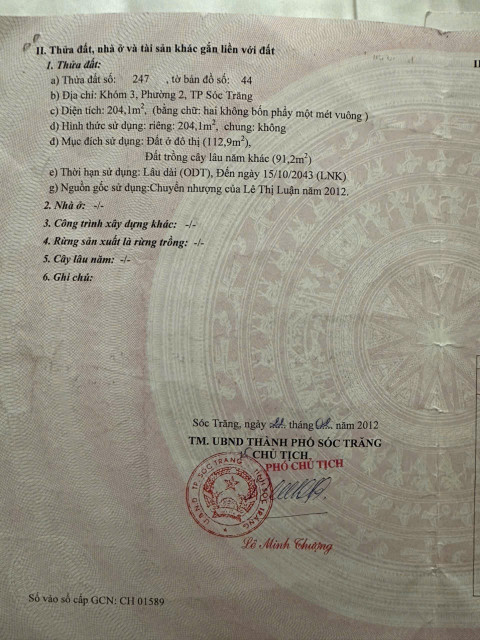 II. Thửa đất, nhà ở và tài sản khác gắn liền với đất
1. Thửa đất:
a) Thửa đất số: 247 , tờ bản đồ số: 44
b) Địa chỉ: Khóm 3, Phường 2, TP Sóc Trăng
c) Diện tích: 204,1m², (bằng chữ: hai không bốn phẩy một mét vuông )
d) Hình thức sử dụng: riêng: 204,1m², chung: không
đ) Mục đích sử dụng: Đất ở đô thị (112,9m²),
Đất trồng cây lâu năm khác (91,2m²)
e) Thời hạn sử dụng: Lâu dài (ODT), Đến ngày 15/10/2043 (LNK)
g) Nguồn gốc sử dụng:Chuyển nhượng của Lê Thị Luận năm 2012.
2. Nhà ở: -/-
3. Công trình xây dựng khác: -/-
4. Rừng sản xuất là rừng trồng: -/-
5. Cây lâu năm: -/-
6. Ghi chú:
Sóc Trăng, ngày tháng năm 2012
TM. UBND THÀNH PHỐ SÓC TRĂNG
CHỦ TỊCH
PHÓ CHỦ TỊCH
U.B.N.D TP. SÓC TRĂNG TỈNH SÓC TRĂNG
Lê Minh Thượng
Số vào sổ cấp GCN: CH 01589